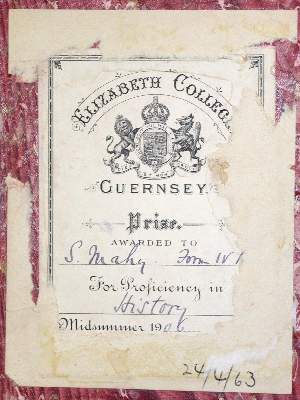 ELIZABETH COLLEG
GUERNSEY.
Prize.
AWARDED TO
S. Mahy. Form IV
For Proficiency in
History
Midsummer 1906
24/4/63